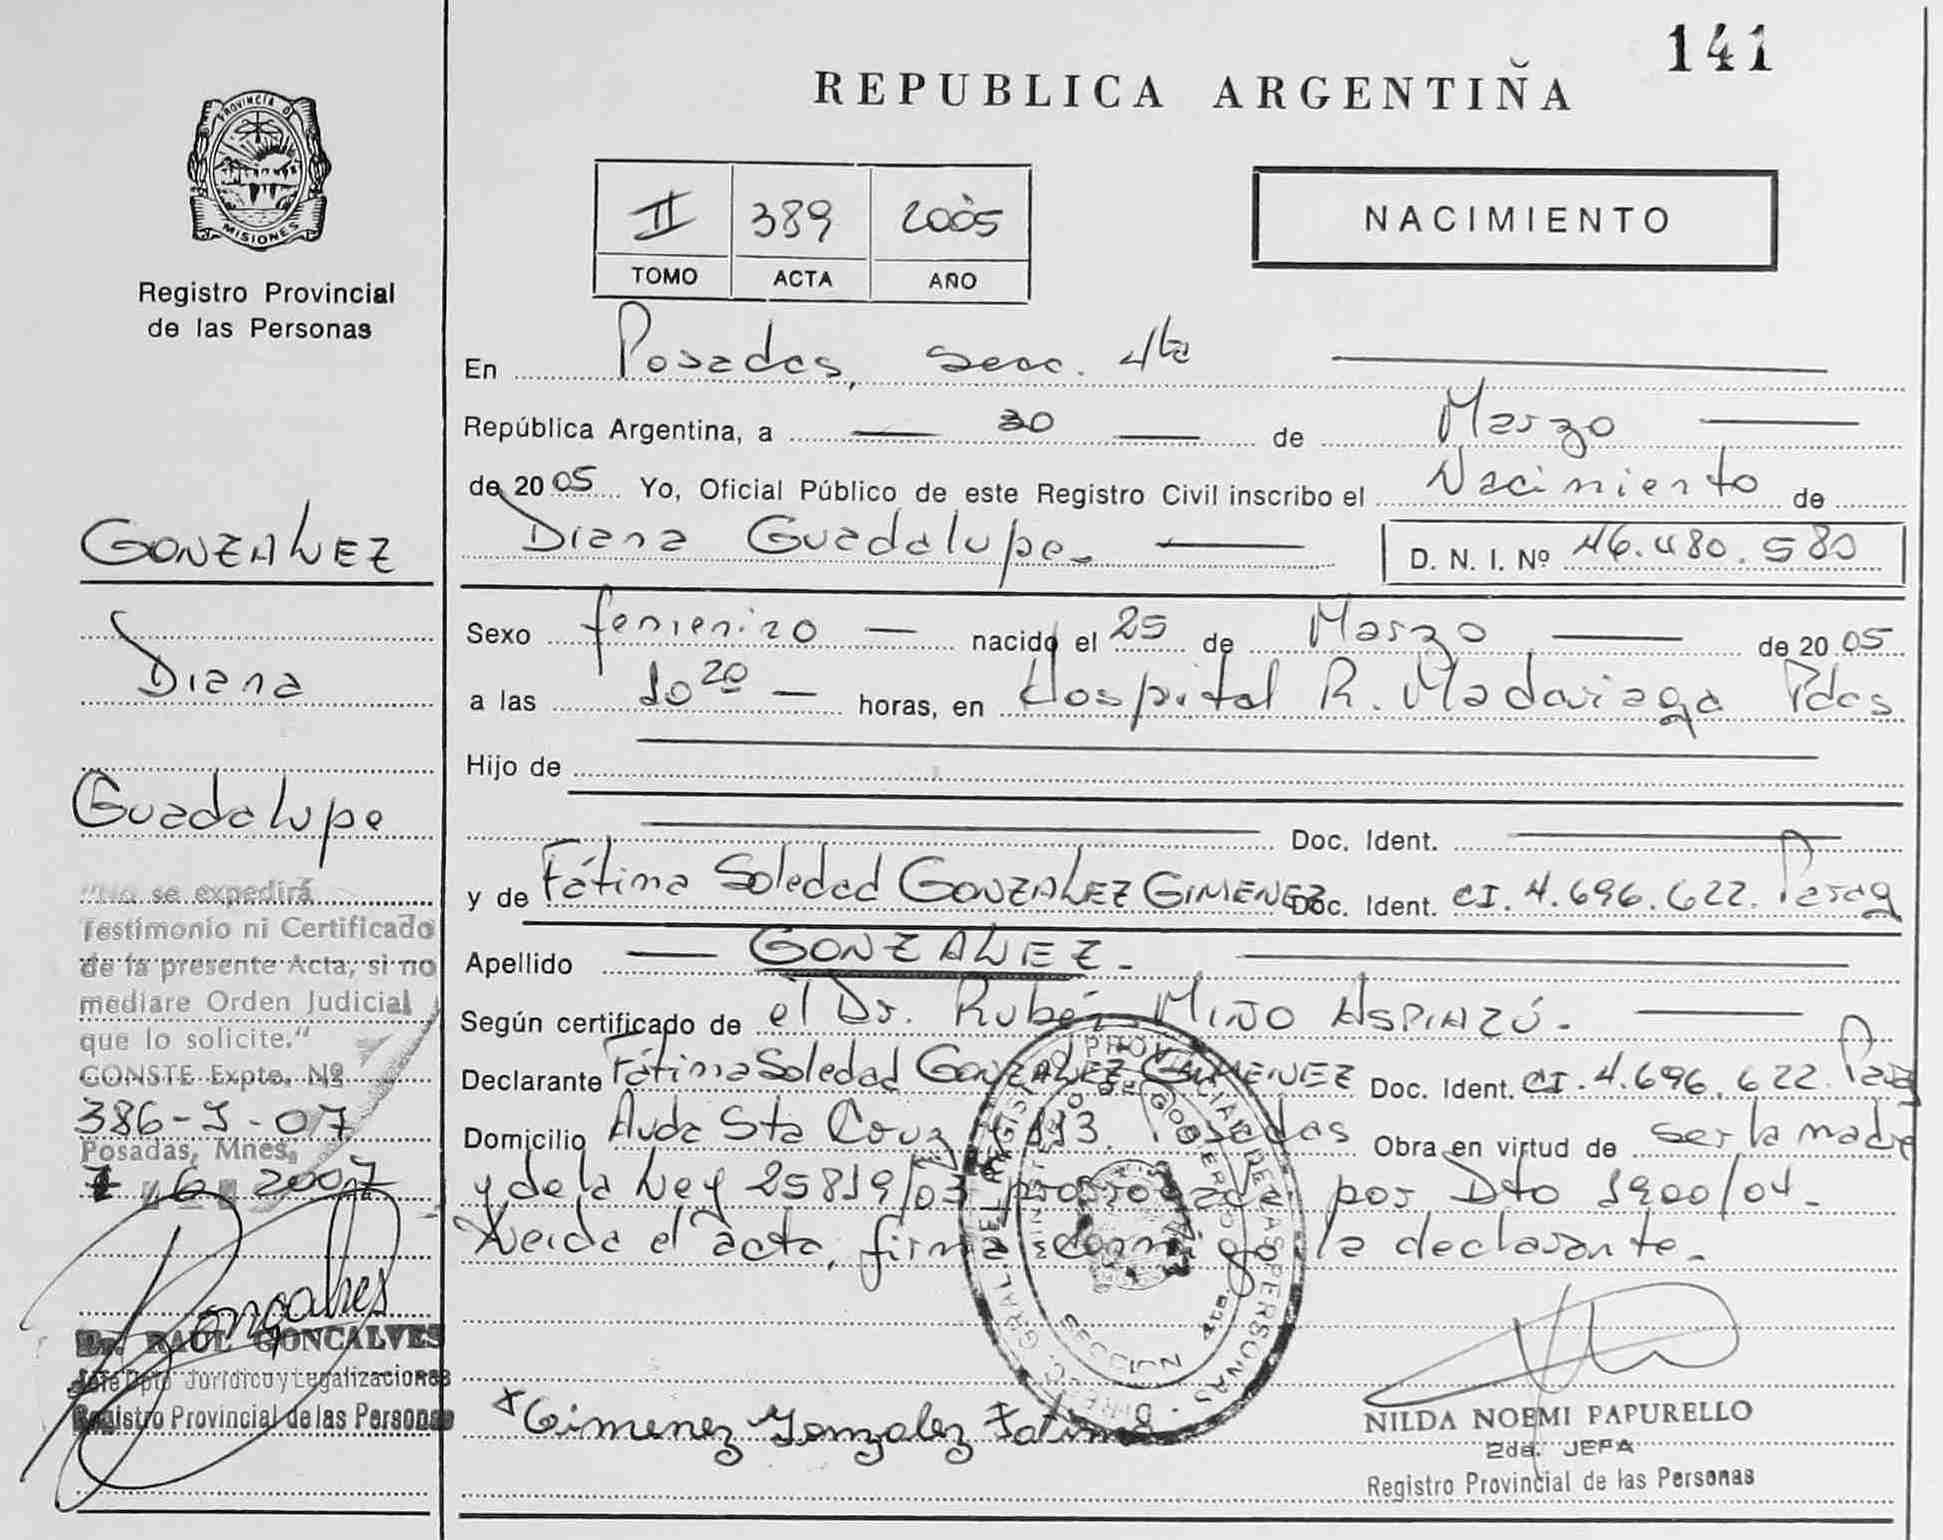 141
REPUBLICA ARGENTIÑA
PROVINCIA D
MISIONES
Registro Provincial
de las Personas
II 389 2005
TOMO ACTA AÑO
NACIMIENTO
En Posadas, secc. 4ta
República Argentina, a 30 de Marzo
de 2005 Yo, Oficial Público de este Registro Civil inscribo el Nacimiento de
Diana Guadalupe. D. N. I. Nº 46.480.580
Sexo femenino nacido el 25 de Marzo de 2005
a las 10 20 horas, en Hospital R. Madariaga Pdas
Hijo de
Doc. Ident.
y de Fátima Soledad GONZALEZ GIMENEZ Doc. Ident. CI. 4.696.622. Parag
Apellido GONZALEZ.
Según certificado de el Dr. Rubén MIÑO
Declarante Fátima Soledad GONZALEZ GIMENEZ Doc. Ident. CI. 4.696.622. Parag
Domicilio Avda Sta Cruz Posadas Obra en virtud de ser la madre
y de la Ley 25819/03 prorrogada por Dto 1900/04.
Leida el acta, firma conmigo la declarante.
GONZALEZ
Diana
Guadalupe
"No se expedirá
Testimonio ni Certificado
de la presente Acta, si no
mediare Orden Judicial
que lo solicite."
CONSTE Expte. Nº
386-J-07
Posadas, Mnes,
7 6 2007
Gonçalves
Dr. RAUL GONCALVES
Jefe Dpto Jurídico y Legalizaciones
Registro Provincial de las Personas
DIREC. GRAL. DEL REGISTRO PROVINCIAL DE LAS PERSONAS
MINISTERIO DE GOBIERNO
SECCION 4ta.
x Gimenez Gonzalez Fatima
NILDA NOEMI PAPURELLO
2da. JEFA
Registro Provincial de las Personas